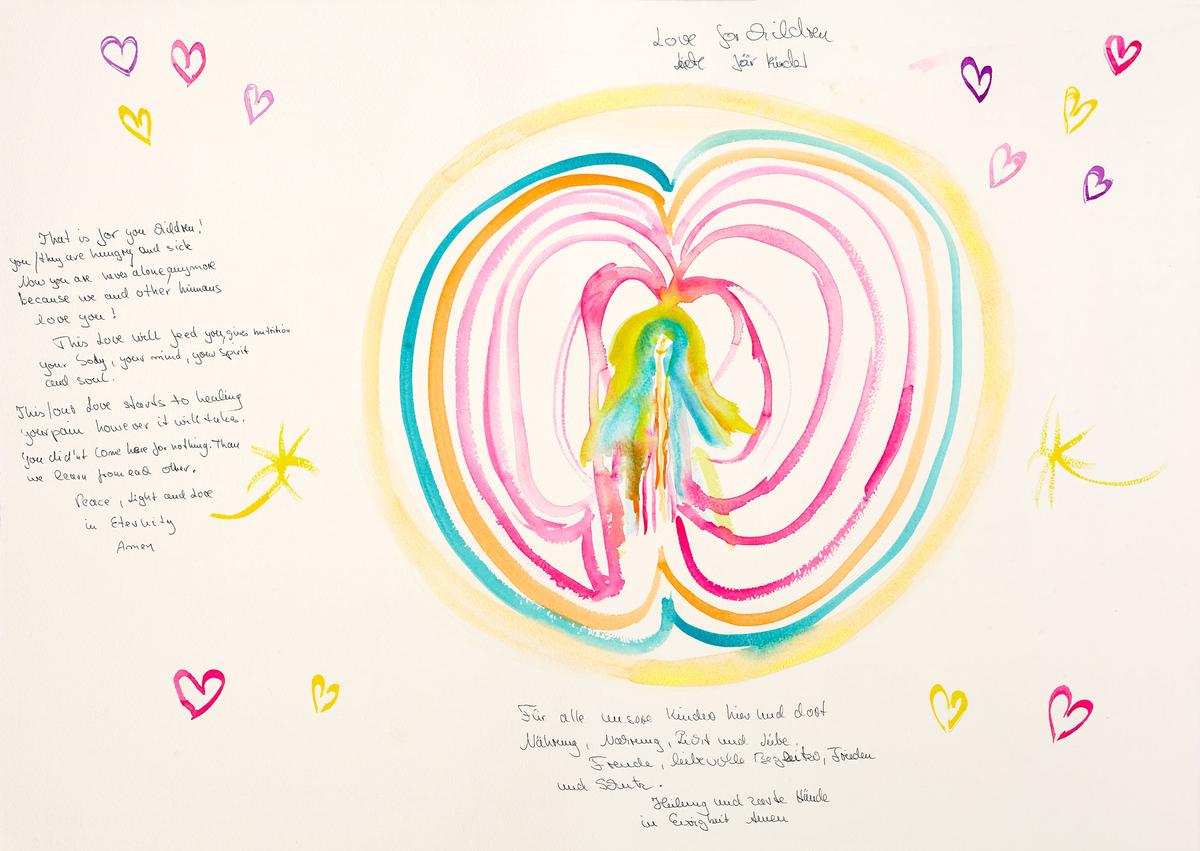 Love for Children
Liebe für Kinder
That is for you Children!
you/they are hungry and sick
Now you are never alone anymore
because we and other humans
love you!
This Love will feed you, gives nutrition
your Body, your mind, your spirit
and soul.
This/our Love starts to healing
your pain however it will takes.
You did'nt come here for nothing. Than
we learn from each other.
Peace, Light and Love
in Eternity
Amen
Für alle unsere Kinder hier und dort
Nährung, Nahrung, Licht und Liebe.
Freude, liebevolle Begleiter, Frieden
und Schutz.
Heilung und zarte Hände
in Ewigkeit Amen